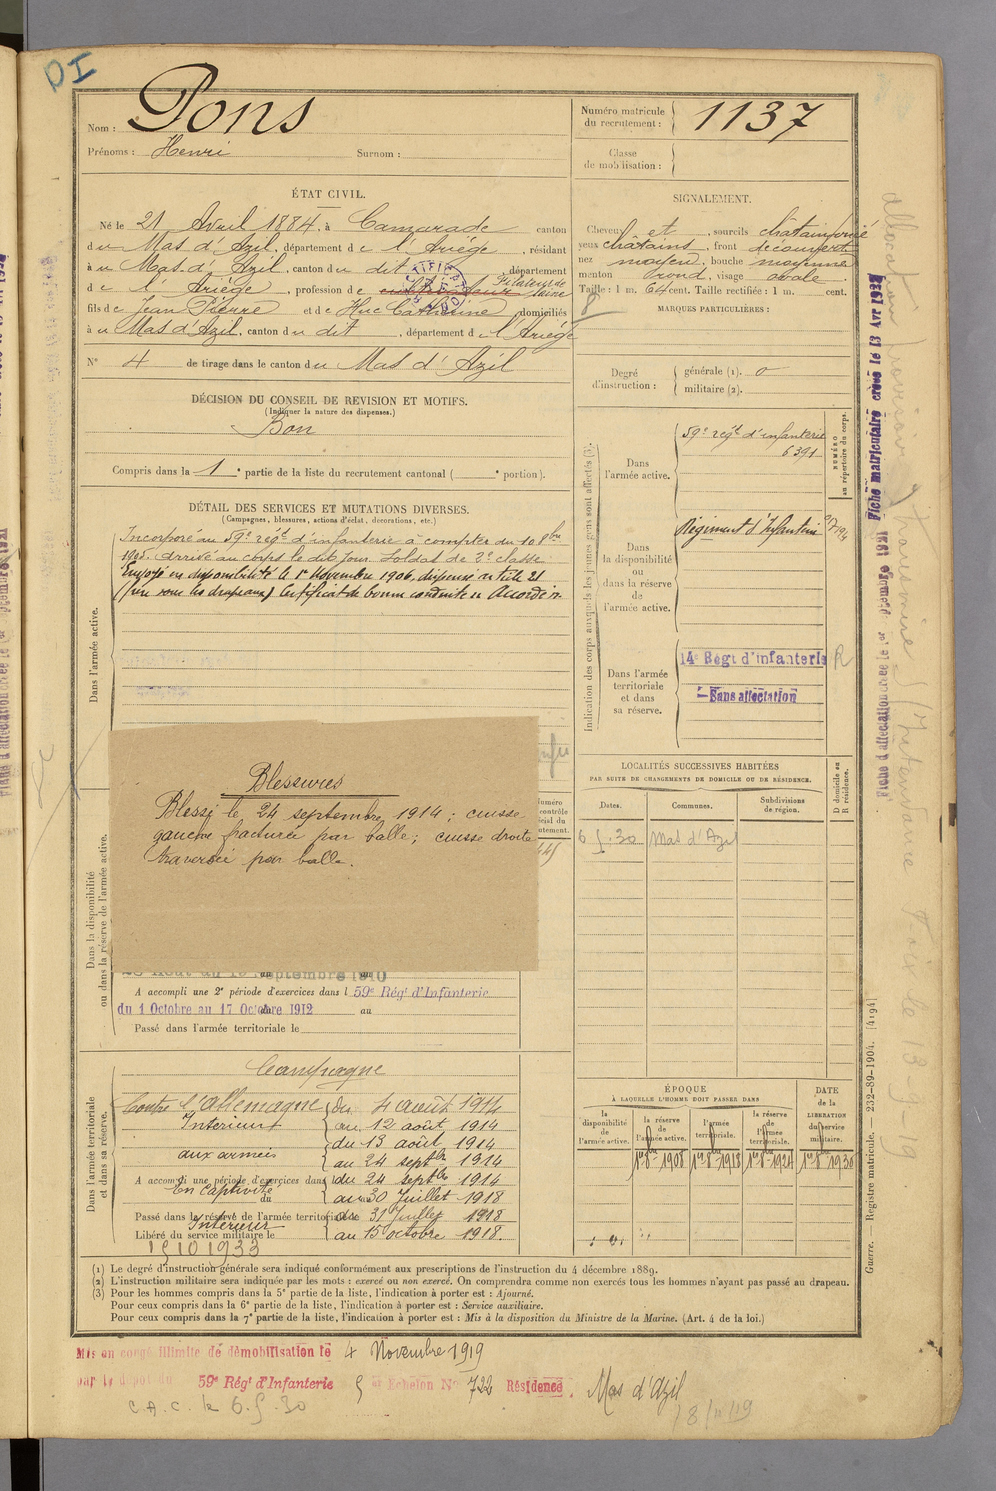 DI
Nom : Pons
Prénoms : Henri Surnom :
Numéro matricule du recrutement : 1137
Classe de mobilisation :
ÉTAT CIVIL.
Né le 21 Avril 1884, à Camarade canton
du Mas d'Azil, département de l'Ariège, résidant
à u Mas d'Azil, canton du dit, département
de l'Ariège, profession de Filateur de laine
fils de Jean Pierre et de Huc Catherine, domiciliés
à u Mas d'Azil, canton du dit, département de l'Ariège
N° 4 de tirage dans le canton du Mas d'Azil
SIGNALEMENT.
Cheveux et sourcils châtain foncé
yeux châtains, front découvert
nez moyen, bouche moyenne
menton rond, visage ovale
Taille : 1 m. 64 cent. Taille rectifiée : 1 m. cent.
MARQUES PARTICULIÈRES :
Degré d'instruction : générale (1). 0
militaire (2).
DÉCISION DU CONSEIL DE REVISION ET MOTIFS.
(Indiquer la nature des dispenses.)
Bon
Compris dans la 1e partie de la liste du recrutement cantonal ( e portion).
DÉTAIL DES SERVICES ET MUTATIONS DIVERSES.
(Campagnes, blessures, actions d'éclat, décorations, etc.)
Dans l'armée active.
Incorporé au 59e régt d'infanterie à compter du 10 8bre
1905. Arrivé au corps le dit jour. Soldat de 2e classe
Envoyé en disponibilité le 1er Novembre 1906, dispensé article 21
Certificat de bonne conduite Accordé
Indication des corps auxquels les jeunes gens sont affectés (3).
NUMÉRO au répertoire du corps.
Dans l'armée active.
59e régt d'infanterie
6391
Dans la disponibilité ou dans la réserve de l'armée active.
Régiment d'Infanterie
Dans l'armée territoriale et dans sa réserve.
14e Régt d'infanterie R
Sans affectation
Dans la disponibilité ou dans la réserve de l'armée active.
Blessures
Blessé le 24 septembre 1914 ; cuisse
gauche fracturée par balle ; cuisse droite
traversée par balle.
A accompli une 2e période d'exercices dans l 59e Régt d'Infanterie
du 1 Octobre au 17 Octobre 1912 au
Passé dans l'armée territoriale le
LOCALITÉS SUCCESSIVES HABITÉES
PAR SUITE DE CHANGEMENTS DE DOMICILE OU DE RÉSIDENCE.
D domicile ou R résidence.
Dates. Communes. Subdivisions de région.
6 5.30 Mas d'Azil
Dans l'armée territoriale et dans sa réserve.
Campagne
Contre l'Allemagne du 4 août 1914
Intérieur au 12 août 1914
du 13 août 1914
aux armées au 24 septbre 1914
A accompli une période d'exercices dans l du 24 septbre 1914
En captivité du au 30 Juillet 1918
Passé dans la réserve de l'armée territoriale du 31 Juillet 1918
Intérieur
Libéré du service militaire le au 15 octobre 1918
15 10 1933
ÉPOQUE
À LAQUELLE L'HOMME DOIT PASSER DANS
DATE de la LIBÉRATION du service militaire.
la disponibilité de l'armée active.
la réserve de l'armée active.
l'armée territoriale.
la réserve de l'armée territoriale.
1er 8bre 1908 1er 8bre 1918 1er 8bre 1924 1er 8bre 1930
(1) Le degré d'instruction générale sera indiqué conformément aux prescriptions de l'instruction du 4 décembre 1889.
(2) L'instruction militaire sera indiquée par les mots : exercé ou non exercé. On comprendra comme non exercés tous les hommes n'ayant pas passé au drapeau.
(3) Pour les hommes compris dans la 5e partie de la liste, l'indication à porter est : Ajourné.
Pour ceux compris dans la 6e partie de la liste, l'indication à porter est : Service auxiliaire.
Pour ceux compris dans la 7e partie de la liste, l'indication à porter est : Mis à la disposition du Ministre de la Marine. (Art. 4 de la loi.)
Mis en congé illimité de démobilisation le 4 Novembre 1919
par le dépôt du 59e Régt d'Infanterie 5 e Echelon N° 722 Résidence. Mas d'Azil
C.A.C. le 6.5.30
Guerre. — Registre matricule. — 232-89-1904. [4194]
Fiche matriculaire créée le 13 Avr 1932
Fiche d'affectation créée le 1er Septembre 1931